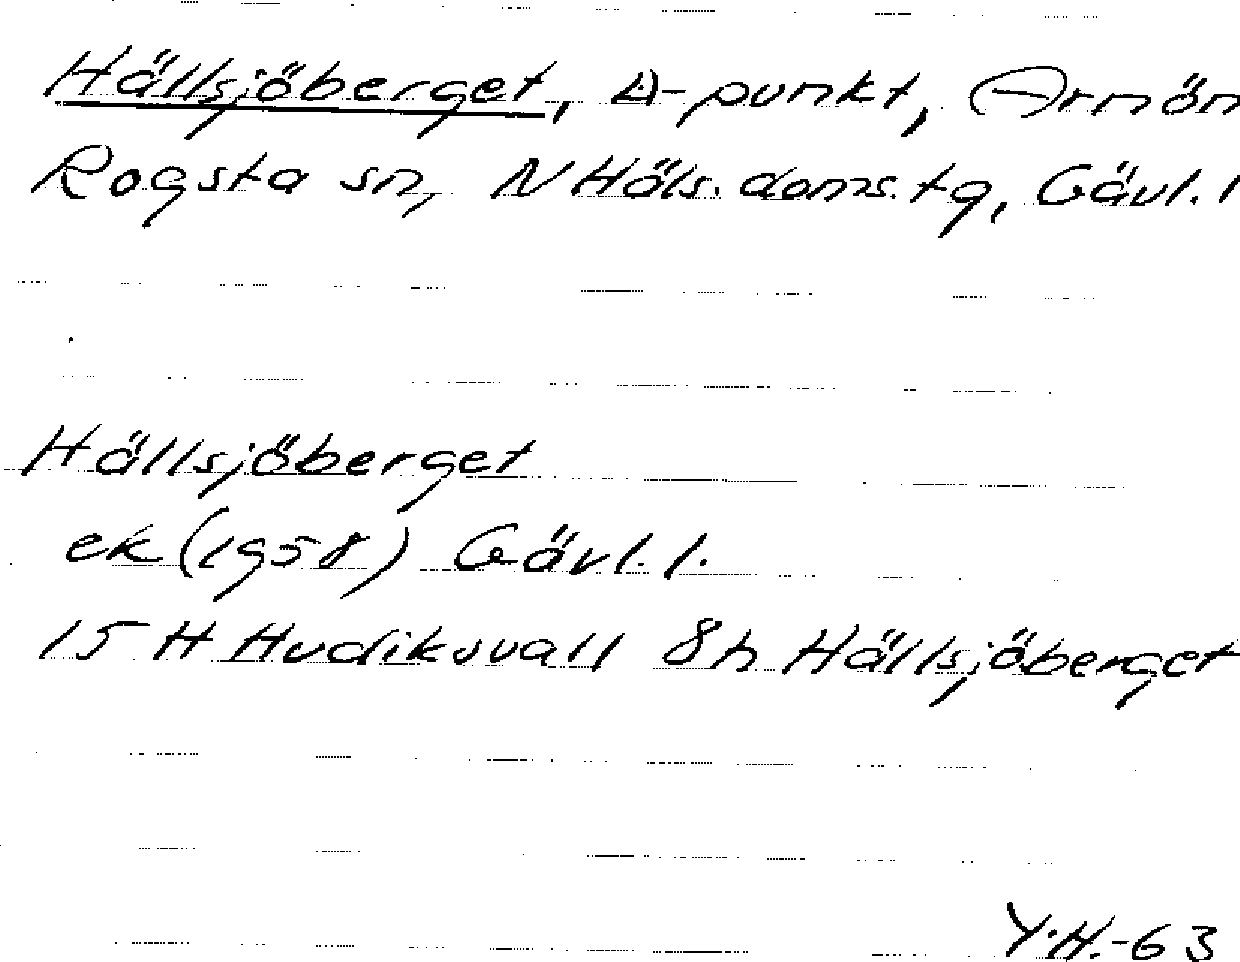 Hällsjöberget, Δ-punkt, Arnön
Rogsta sn, N Häls. doms.tg, Gävl. l
Hällsjöberget
ek (1958) Gävl. l.
15 H Hudiksvall 8h Hällsjöberget
Y.H.-63